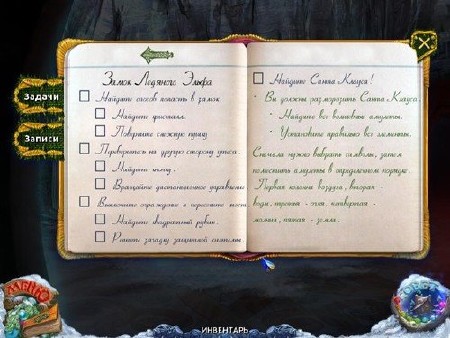 Задачи
Записи
Замок Ледяного Эльфа
Найдите способ попасть в замок.
Найдите кристалл.
Поверните снежную
Переберитесь на другую сторону
Найдите
Вращайте дистанционное управление
Выключите ограждение и
Найдите квадратный рубин.
Решите загадку защитной системы
Найдите Санта Клауса!
- Вы должны разморозить Санта Клауса
- Найдите все волшебные амулеты.
- Установите правильно все элементы.
Сначала нужно выбрать символы, затем
поместить амулеты в определенном порядке.
Первая колонна воздух, вторая -
вода, третья - огня, четвертая -
пятая - земля.
МЕНЮ
ИНВЕНТАРЬ